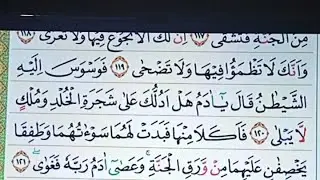 مِنَ الْجَنَّةِ فَتَشْقٰى ۝١١٧ اِنَّ لَكَ اَلَّا تَجُوْعَ فِيْهَا وَلَا تَعْرٰى ۝١١٨
وَاَنَّكَ لَا تَظْمَؤُا فِيْهَا وَلَا تَضْحٰى ۝١١٩ فَوَسْوَسَ اِلَيْهِ
الشَّيْطٰنُ قَالَ يٰٓاٰدَمُ هَلْ اَدُلُّكَ عَلٰى شَجَرَةِ الْخُلْدِ وَمُلْكٍ
لَّا يَبْلٰى ۝١٢٠ فَاَكَلَا مِنْهَا فَبَدَتْ لَهُمَا سَوْاٰتُهُمَا وَطَفِقَا
يَخْصِفٰنِ عَلَيْهِمَا مِنْ وَّرَقِ الْجَنَّةِ ۚ وَعَصٰٓى اٰدَمُ رَبَّهٗ فَغَوٰى ۝١٢١